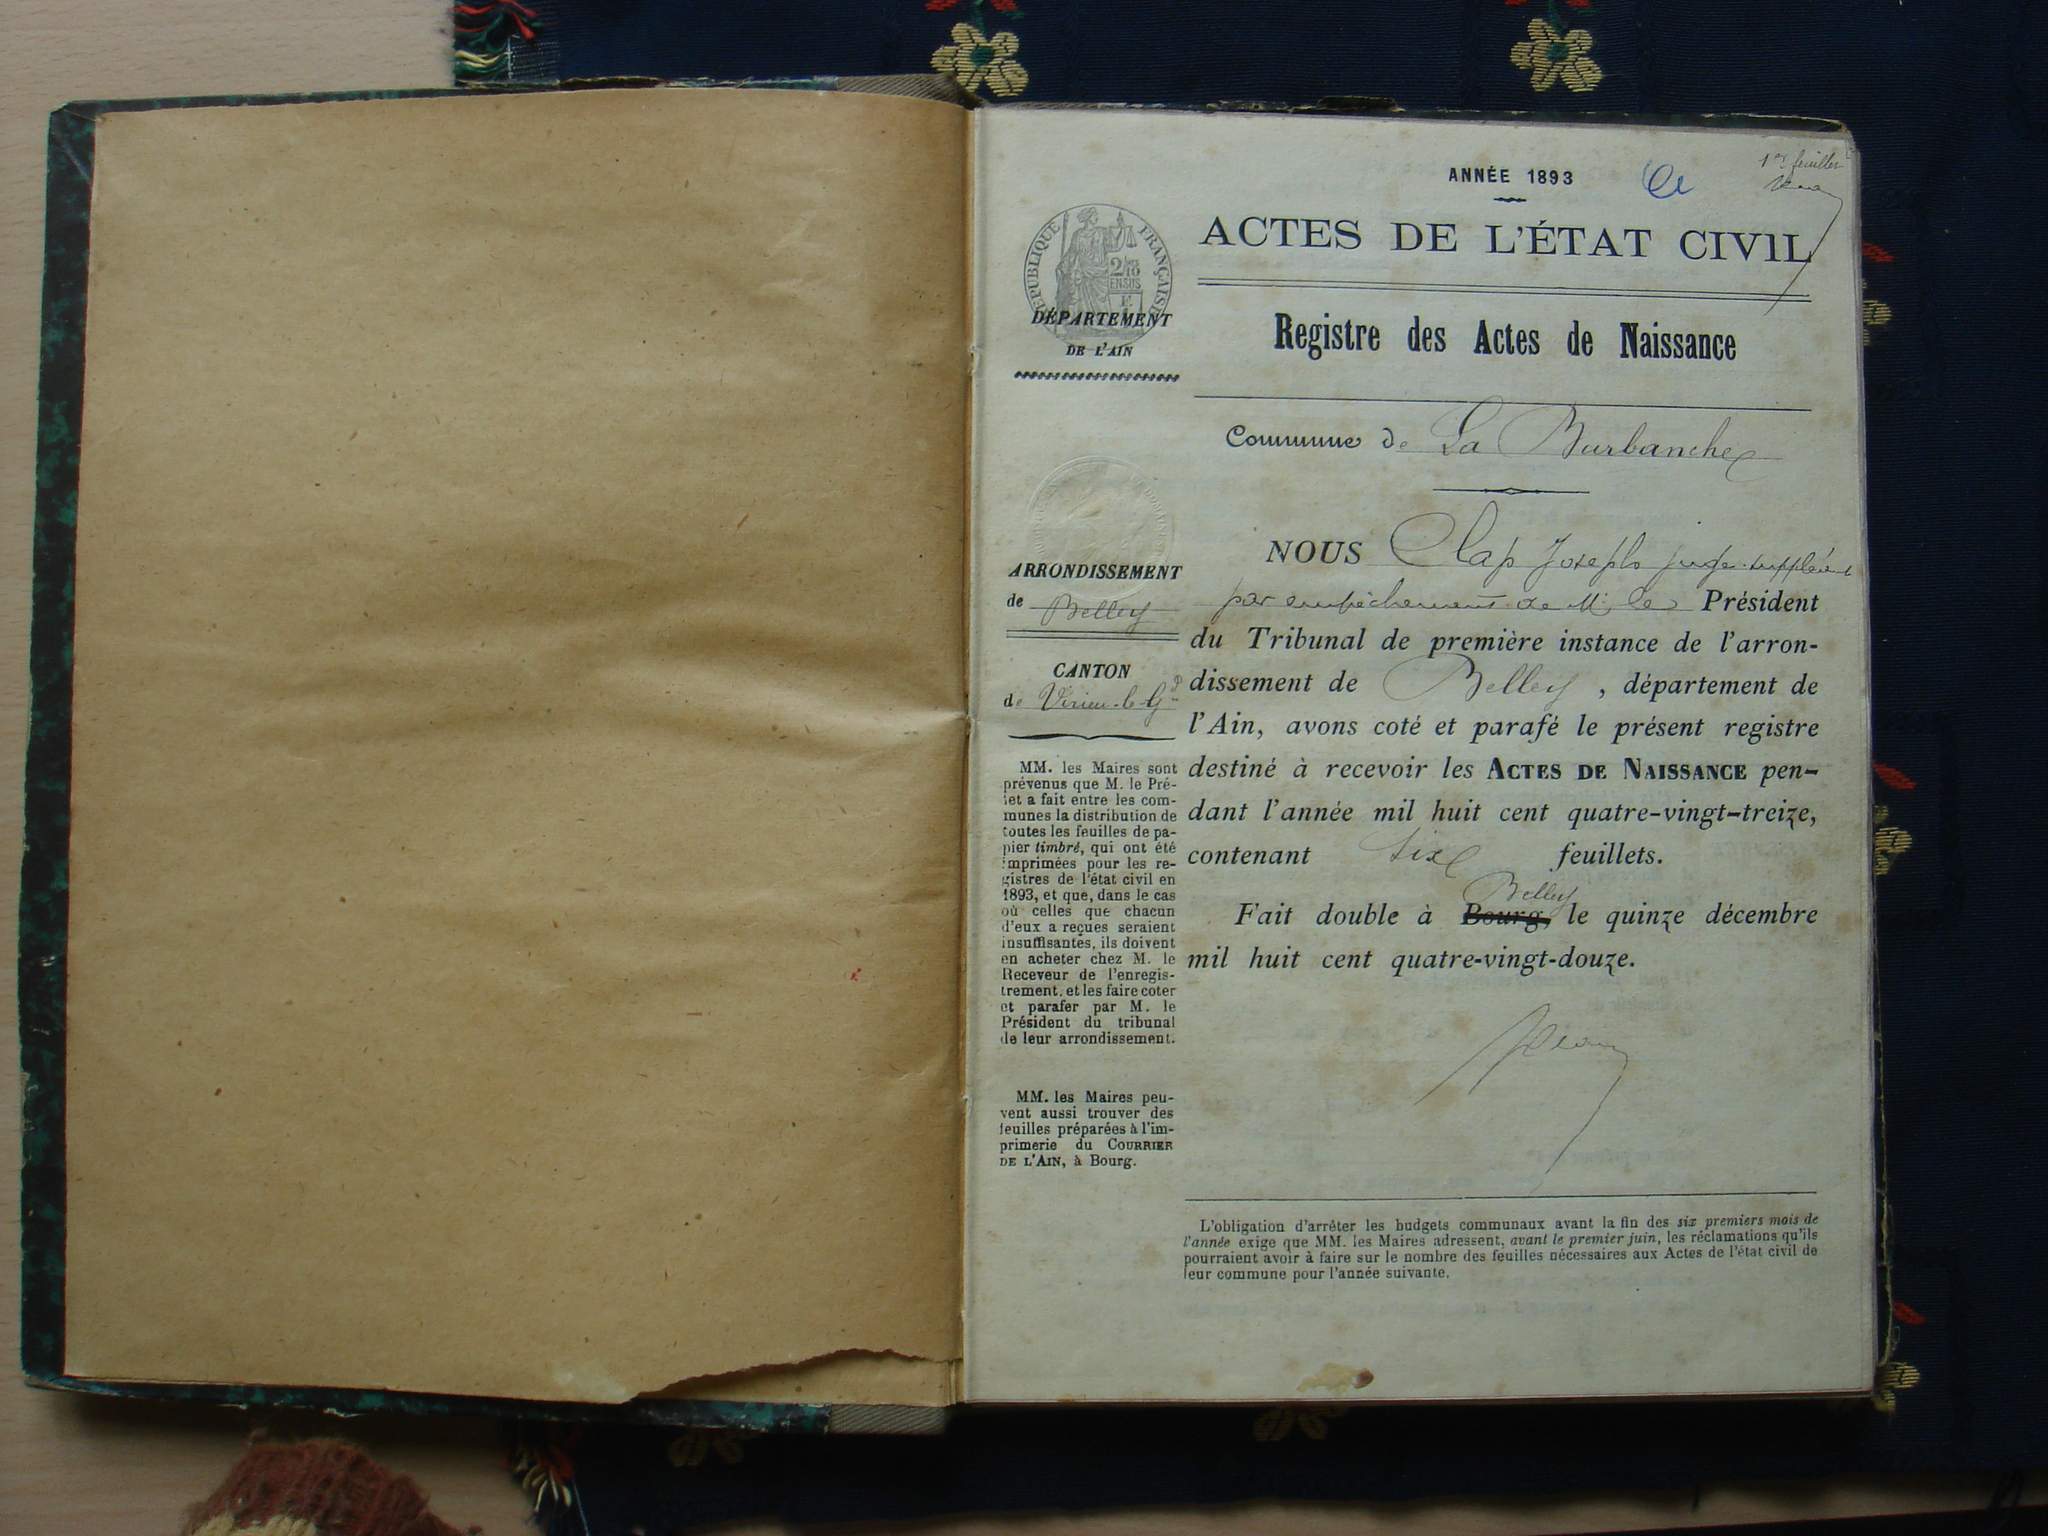 ANNÉE 1893
1er feuillet
ACTES DE L'ÉTAT CIVIL
RÉPUBLIQUE FRANÇAISE
2/10
EN SUS
DÉPARTEMENT
DE L'AIN
Registre des Actes de Naissance
Commune de La Burbanche
ARRONDISSEMENT
de Belley
CANTON
de Virieu-le-Gd
MM. les Maires sont
prévenus que M. le Pré-
fet a fait entre les com-
munes la distribution de
toutes les feuilles de pa-
pier timbré, qui ont été
imprimées pour les re-
gistres de l'état civil en
1893, et que, dans le cas
où celles que chacun
d'eux a reçues seraient
insuffisantes, ils doivent
en acheter chez M. le
Receveur de l'enregis-
trement, et les faire coter
et parafer par M. le
Président du tribunal
de leur arrondissement.
MM. les Maires peu-
vent aussi trouver des
feuilles préparées à l'im-
primerie du COURRIER
DE L'AIN, à Bourg.
NOUS Clap Joseph juge suppléant
par empêchement de Mr le Président
du Tribunal de première instance de l'arron-
dissement de Belley, département de
l'Ain, avons coté et parafé le présent registre
destiné à recevoir les ACTES DE NAISSANCE pen-
dant l'année mil huit cent quatre-vingt-treize,
contenant six feuillets.
Belley
Fait double à Bourg, le quinze décembre
mil huit cent quatre-vingt-douze.
L'obligation d'arrêter les budgets communaux avant la fin des six premiers mois de
l'année exige que MM. les Maires adressent, avant le premier juin, les réclamations qu'ils
pourraient avoir à faire sur le nombre des feuilles nécessaires aux Actes de l'état civil de
leur commune pour l'année suivante.